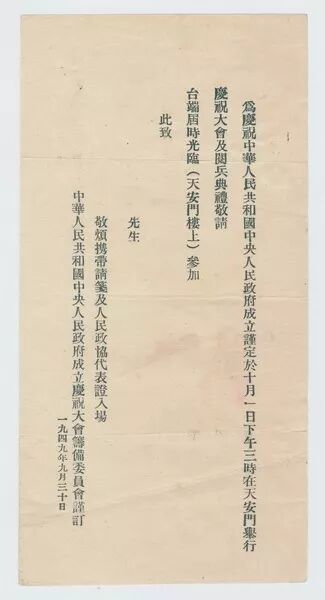 為慶祝中華人民共和國中央人民政府成立謹定於十月一日下午三時在天安門舉行
慶祝大會及閱兵典禮敬請
台端屆時光臨（天安門樓上）參加
此致
先生
敬煩携帶請箋及人民政協代表證入場
中華人民共和國中央人民政府成立慶祝大會籌備委員會謹訂
一九四九年九月三十日